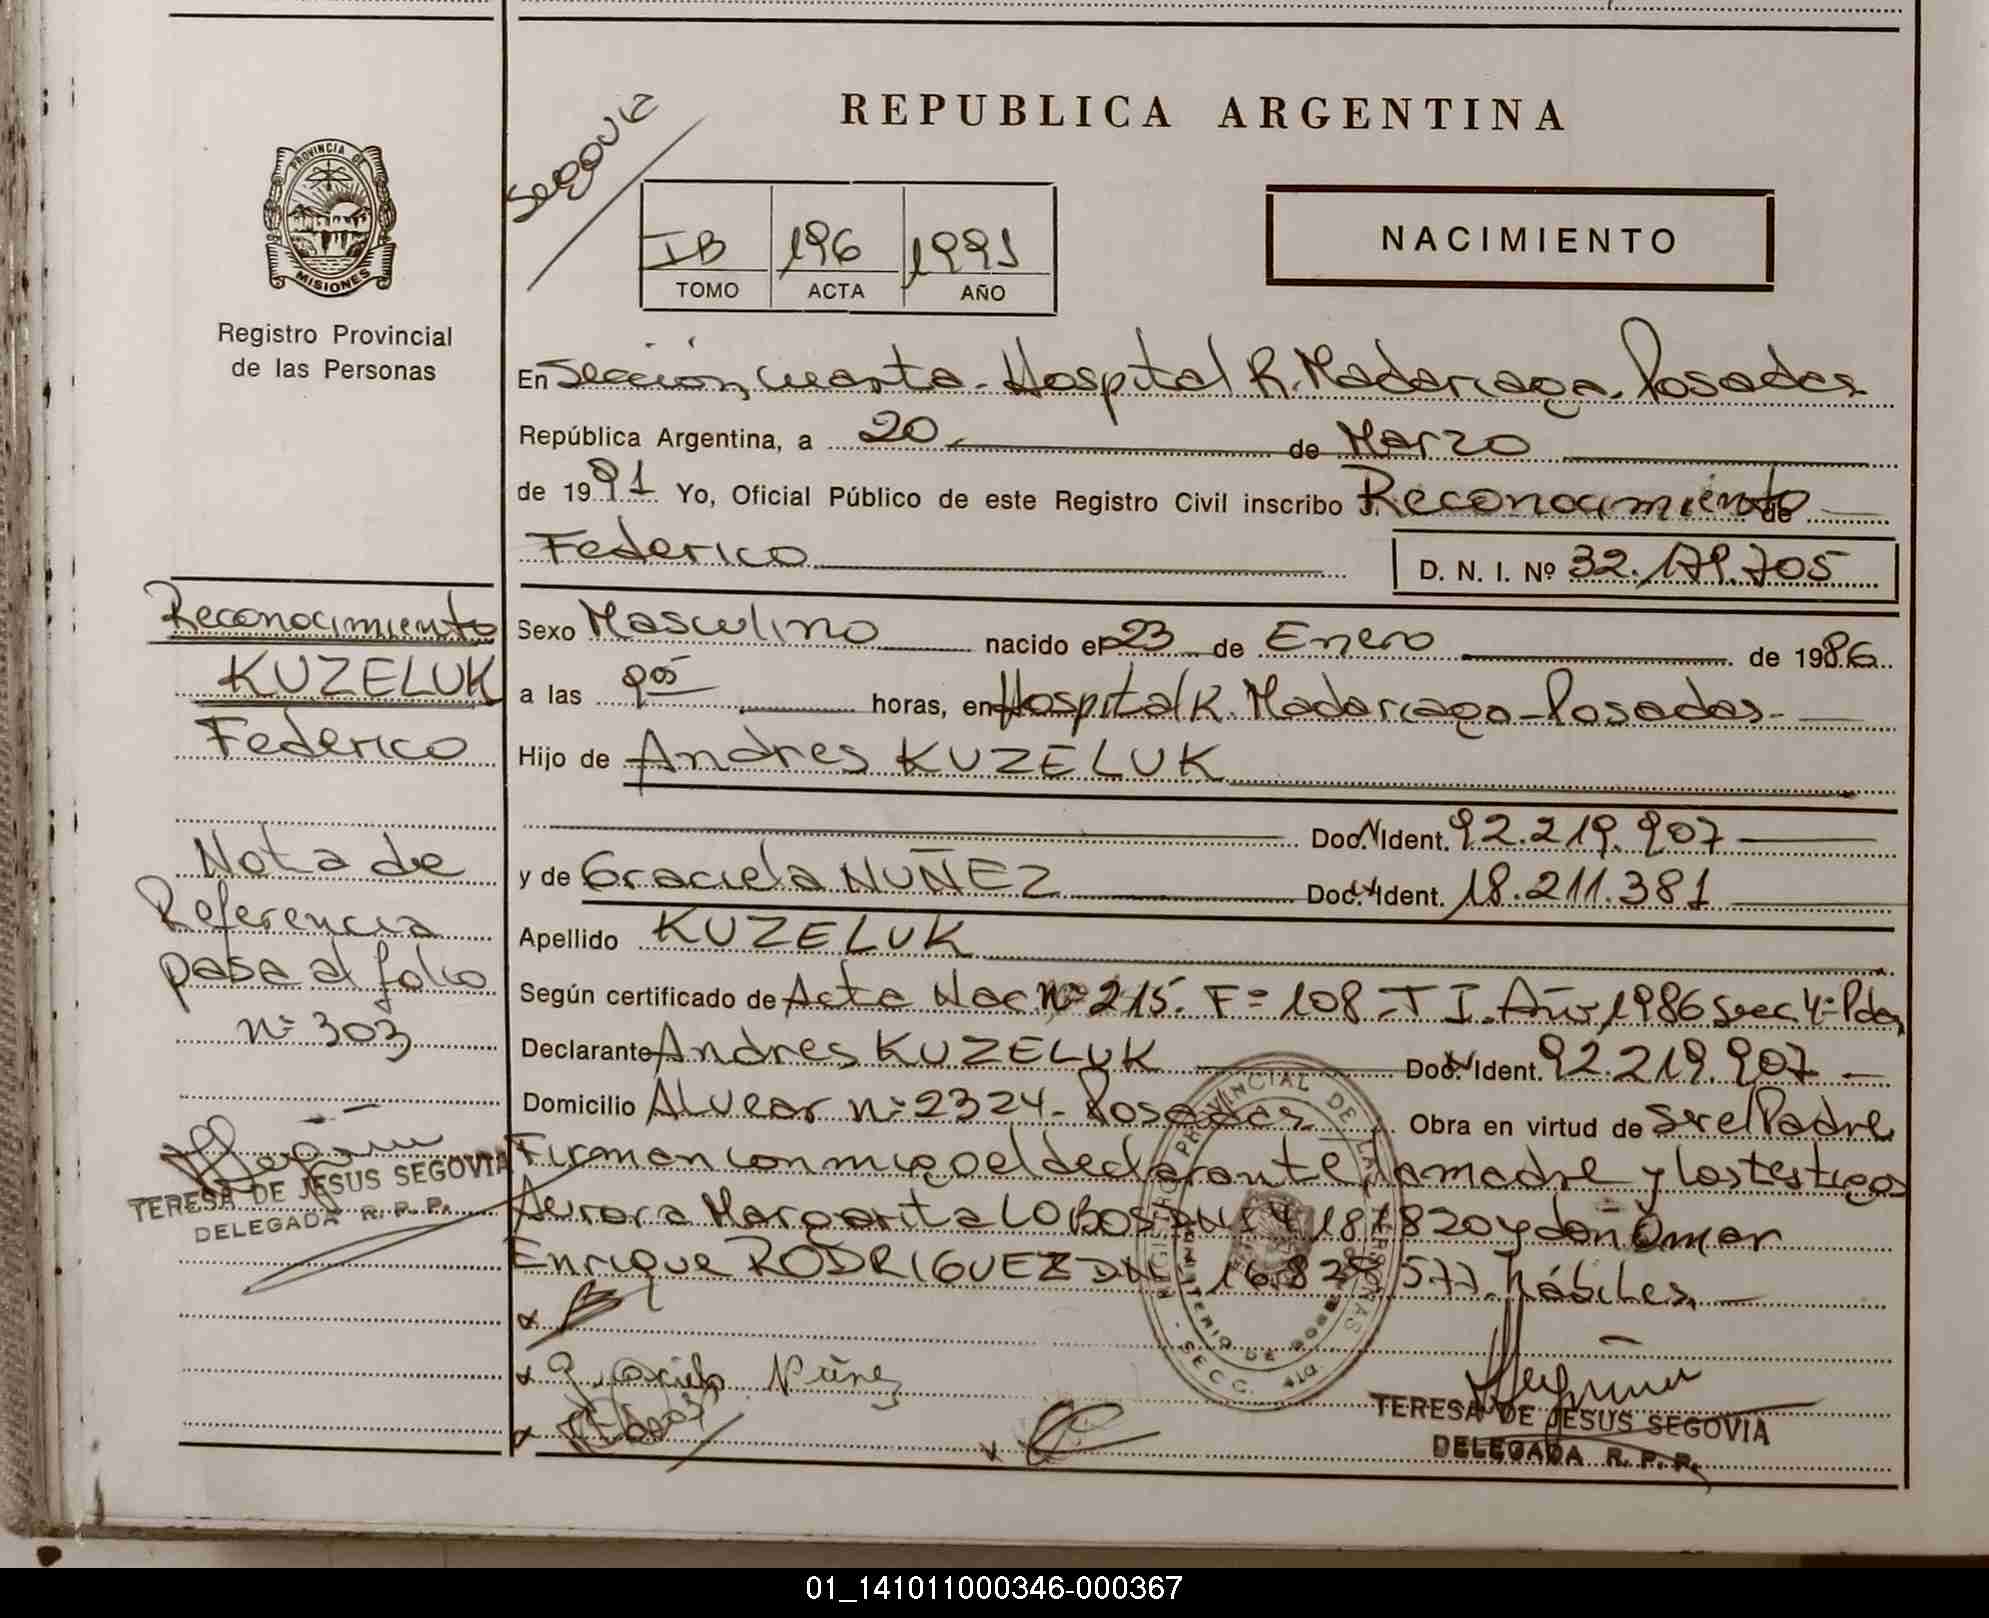 REPUBLICA ARGENTINA
PROVINCIA DE
MISIONES
Registro Provincial
de las Personas
Segovia
IB 196 1991
TOMO ACTA AÑO
NACIMIENTO
En Sección cuarta - Hospital R. Madariaga. Posadas
República Argentina, a 20 de Marzo
de 1991 Yo, Oficial Público de este Registro Civil inscribo Reconocimiento de
Federico D. N. I. Nº 32.179.705
Sexo Masculino nacido el 23 de Enero de 1986
a las 9 05 horas, en Hospital R. Madariaga - Posadas -
Hijo de Andres KUZELUK
Doc. Ident. 92.219.907
y de Graciela NUÑEZ Doc. Ident. 18.211.381
Apellido KUZELUK
Según certificado de Acta Nac. Nº 215. Fº 108 - T I. Año 1986 Secc 4º Pdas
Declarante Andres KUZELUK Doc. Ident. 92.219.907 -
Domicilio Alvear nº 2324 - Posadas Obra en virtud de Ser el Padre
Firman conmigo el declarante, la madre y los testigos
Aurora Margarita LOBOS DNI 187820 y don Omar
Enrique RODRIGUEZ DNI 577 hábiles.
Graciela Nuñez
TERESA DE JESUS SEGOVIA
DELEGADA R. P. P.
Reconocimiento
KUZELUK
Federico
Nota de
Referencia
pasa al folio
nº 303
TERESA DE JESUS SEGOVIA
DELEGADA R. P. P.
01_141011000346-000367